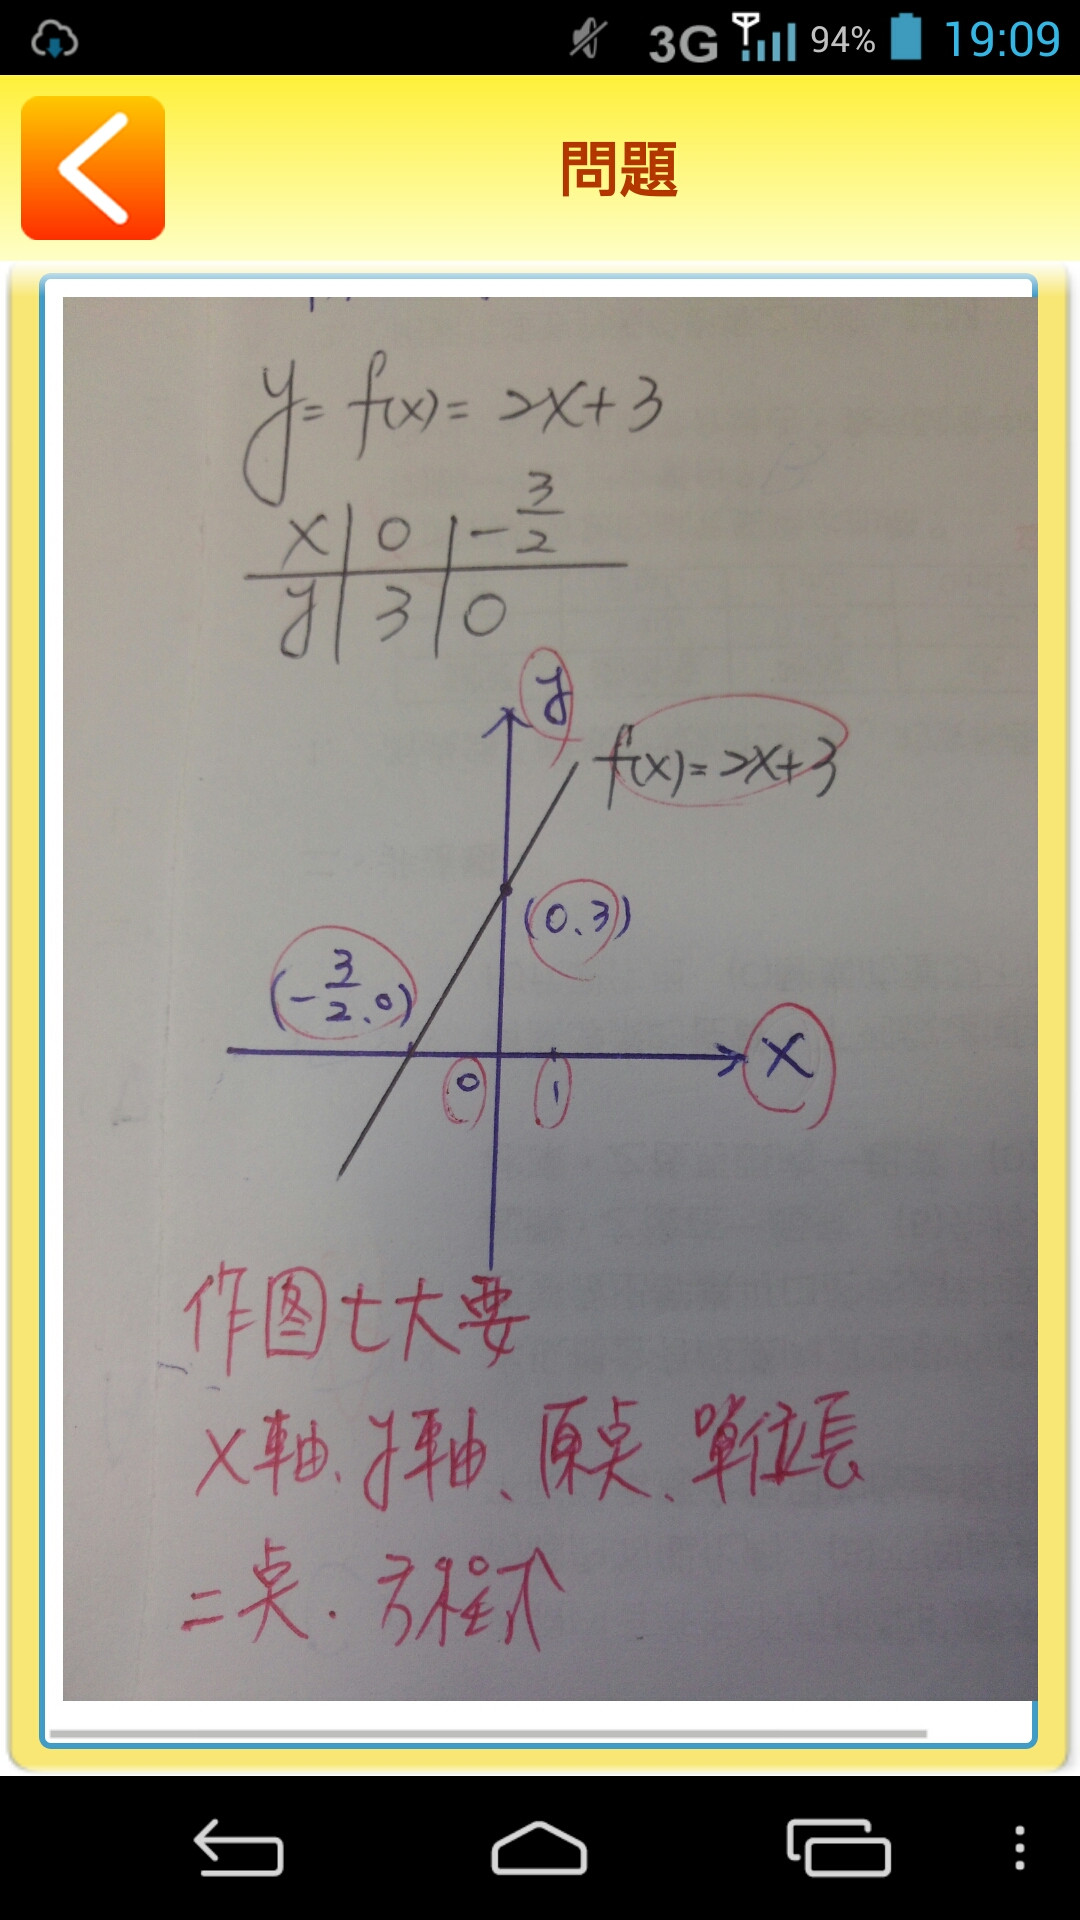 3G 94% 19:09
問題
y = f(x) = 2x+3
x | 0 | -3/2
y | 3 | 0
y
f(x) = 2x+3
(0、3)
(-3/2、0)
x
0 1
作图七大要
X軸、y軸、原点、單位長
二点、方程式